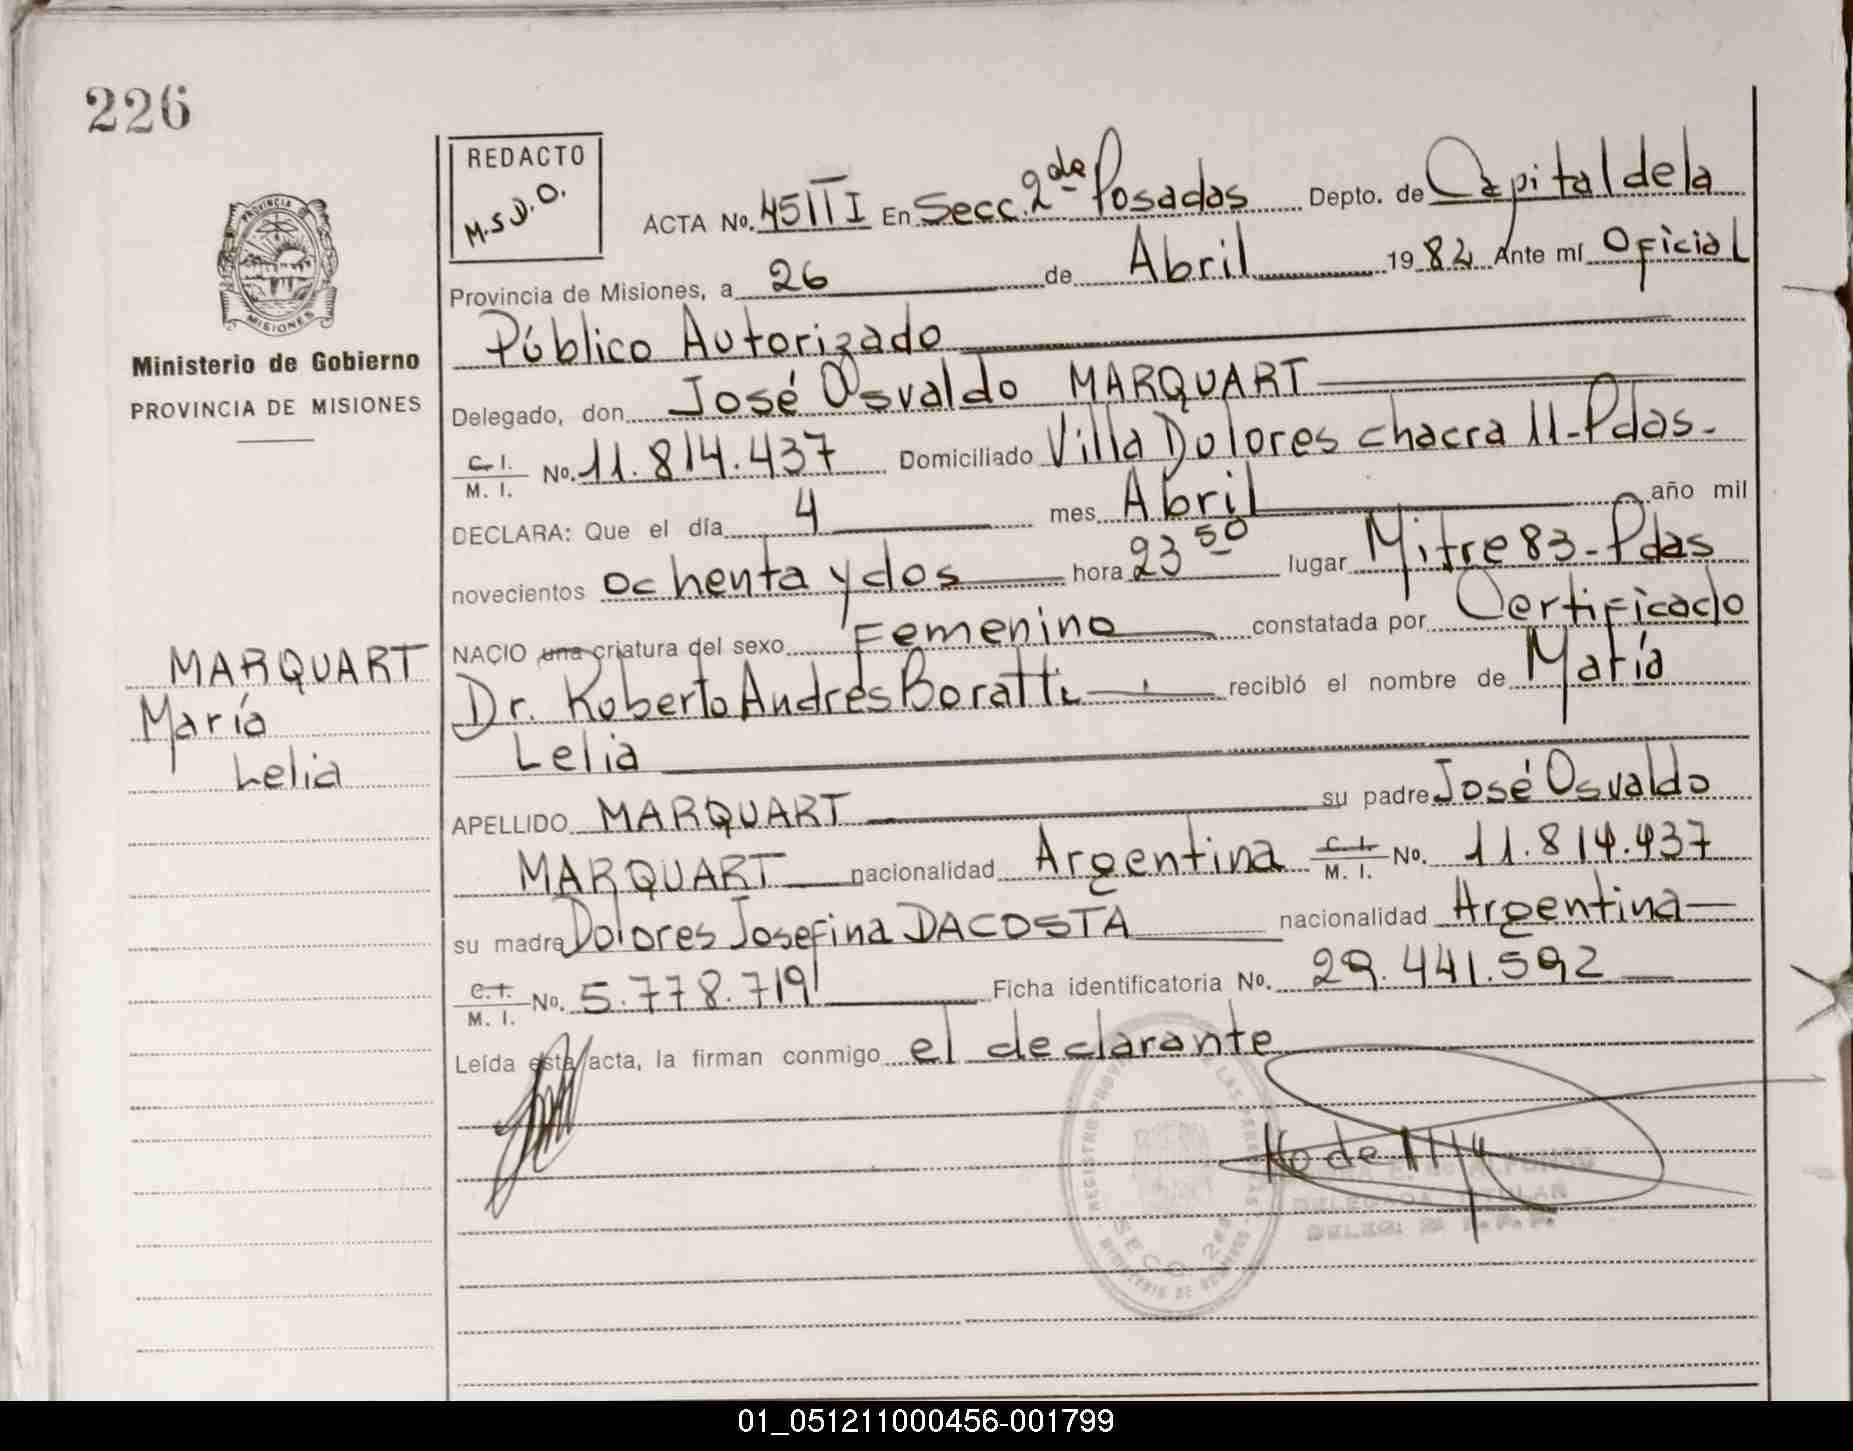 226
REDACTO
M.S.D.O.
ACTA No. 451 T I En Secc. 2da Posadas Depto. de Capital de la
Provincia de Misiones, a 26 de Abril 1982 Ante mí Oficial
Público Autorizado
PROVINCIA
MISIONES
Ministerio de Gobierno
PROVINCIA DE MISIONES
Delegado, don José Osvaldo MARQUART
C. I. / M. I. No. 11.814.437 Domiciliado Villa Dolores chacra 11-Pdas-
DECLARA: Que el día 4 mes Abril año mil
novecientos ochenta y dos hora 23 50 lugar Mitre 83-Pdas
NACIO una criatura del sexo Femenino constatada por Certificado
MARQUART
María
Lelia
Dr. Roberto Andrés Boratti recibió el nombre de María
Lelia
APELLIDO MARQUART su padre José Osvaldo
MARQUART nacionalidad Argentina C. I. / M. I. No. 11.814.437
su madre Dolores Josefina DACOSTA nacionalidad Argentina
C. I. / M. I. No. 5.778.719 Ficha identificatoria No. 29.441.592
Leída esta acta, la firman conmigo el declarante
REGISTRO PROVINCIAL DE LAS PERSONAS
SECC. 2da
MINISTERIO DE GOBIERNO
DELEGADA TITULAR
DELEG. 2a R.P.P.
01_051211000456-001799